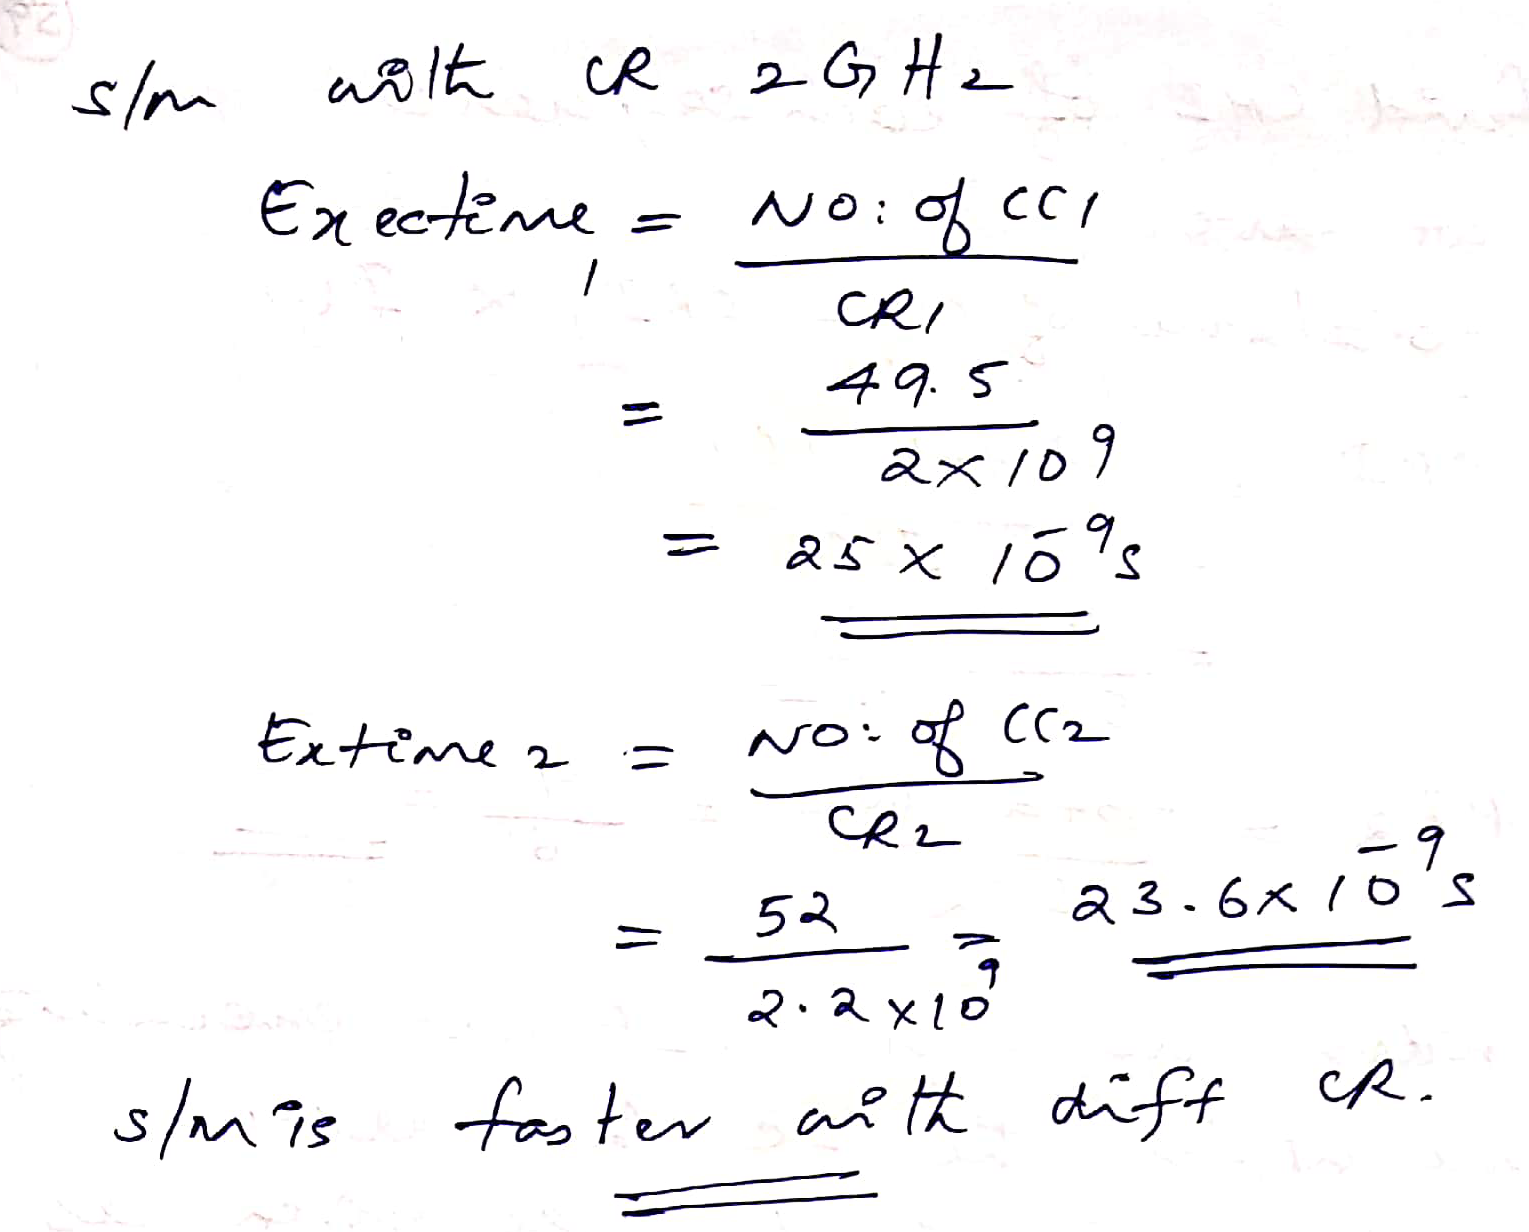 s/m with CR 2GHz
Exectime1 = NO: of CC1
CR1
= 49.5
2×10^9
= 25 × 10^-9 s
Extime2 = NO: of CC2
CR2
= 52 = 23.6×10^-9 s
2.2×10^9
s/m is faster with diff CR.